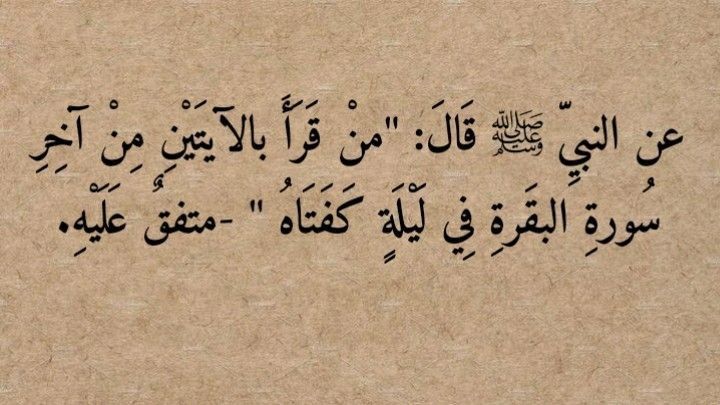 عن النبيِّ ﷺ قَالَ: "منْ قَرَأَ بالآيتَيْنِ مِنْ آخِرِ
سُورةِ البقَرةِ فِي لَيْلَةٍ كَفَتَاهُ " -متفقٌ عَلَيْهِ.